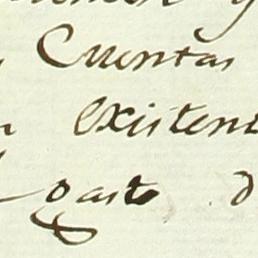 Cuentas
existent
gasto d